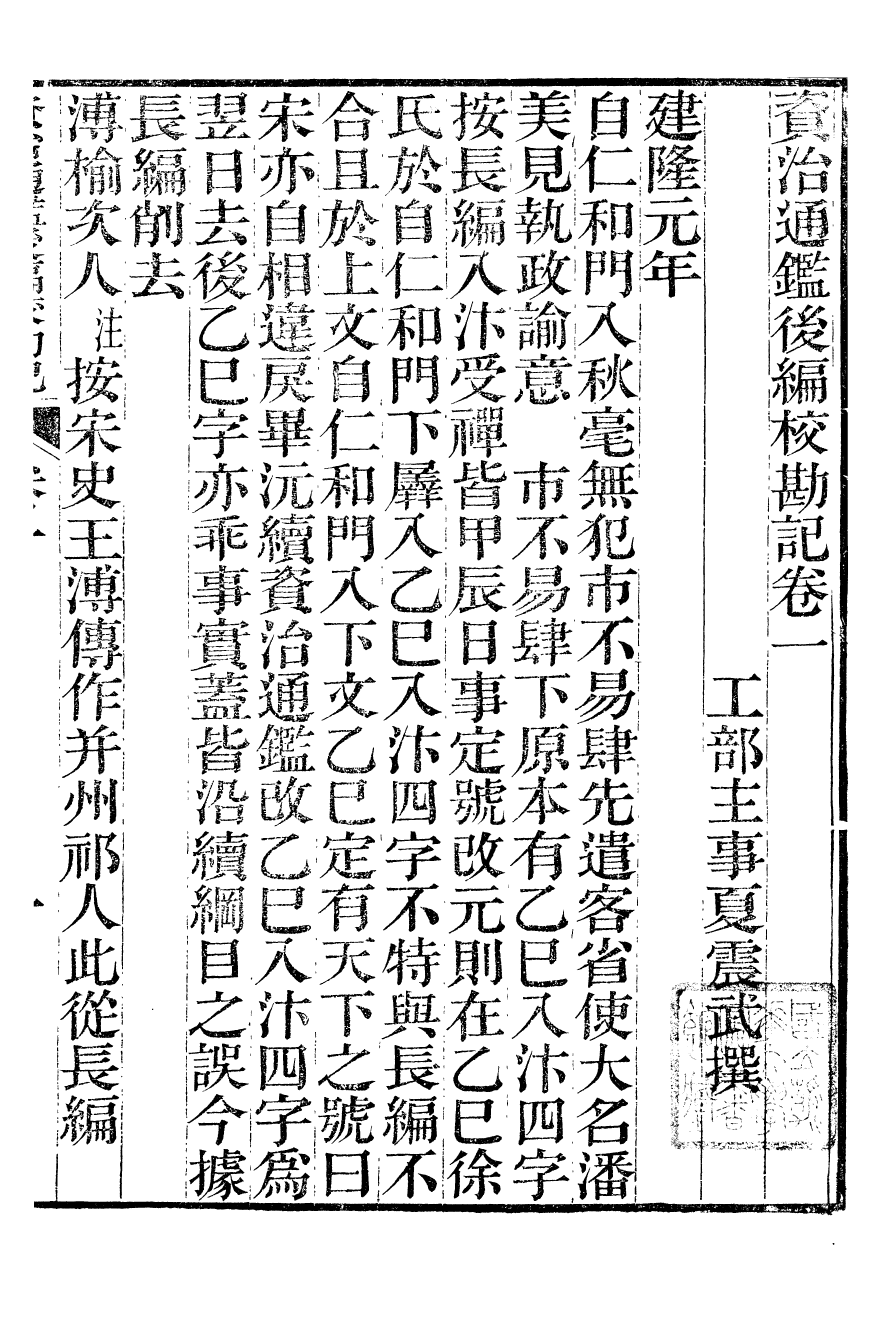 資治通鑑後編校勘記卷一
工部主事夏震武撰
建隆元年
自仁和門入秋毫無犯市不易肆先遣客省使大名潘
美見執政諭意　市不易肆下原本有乙巳入汴四字
按長編入汴受禪皆甲辰日事定號改元則在乙巳徐
氏於自仁和門下羼入乙巳入汴四字不特與長編不
合且於上文自仁和門入下文乙巳定有天下之號曰
宋亦自相違戾畢沅續資治通鑑改乙巳入汴四字爲
翌日去後乙巳字亦乖事實蓋皆沿續綱目之誤今據
長編削去
溥榆次人注按宋史王溥傳作并州祁人此從長編